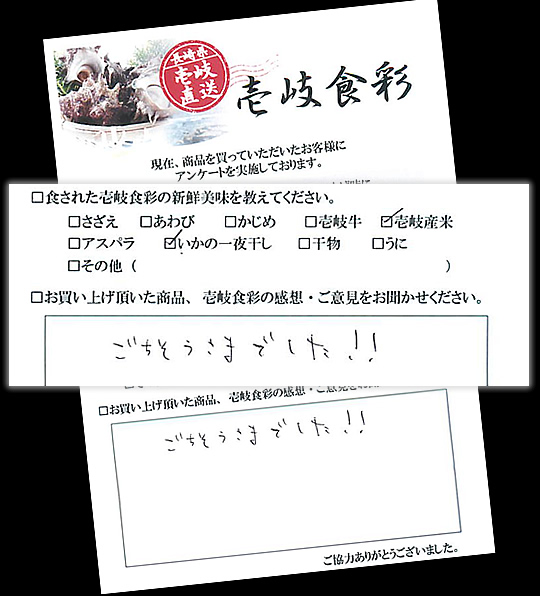 長崎県
壱岐
直送
壱岐食彩
現在、商品を買っていただいたお客様に
アンケートを実施しております。
□食された壱岐食彩の新鮮美味を教えてください。
□さざえ □あわび □かじめ □壱岐牛 ☑壱岐産米
□アスパラ ☑いかの一夜干し □干物 □うに
□その他（ ）
□お買い上げ頂いた商品、壱岐食彩の感想・ご意見をお聞かせください。
ごちそうさまでした!!
□お買い上げ頂いた商品、壱岐食彩の感想・ご意見をお聞
ごちそうさまでした!!
ご協力ありがとうございました。